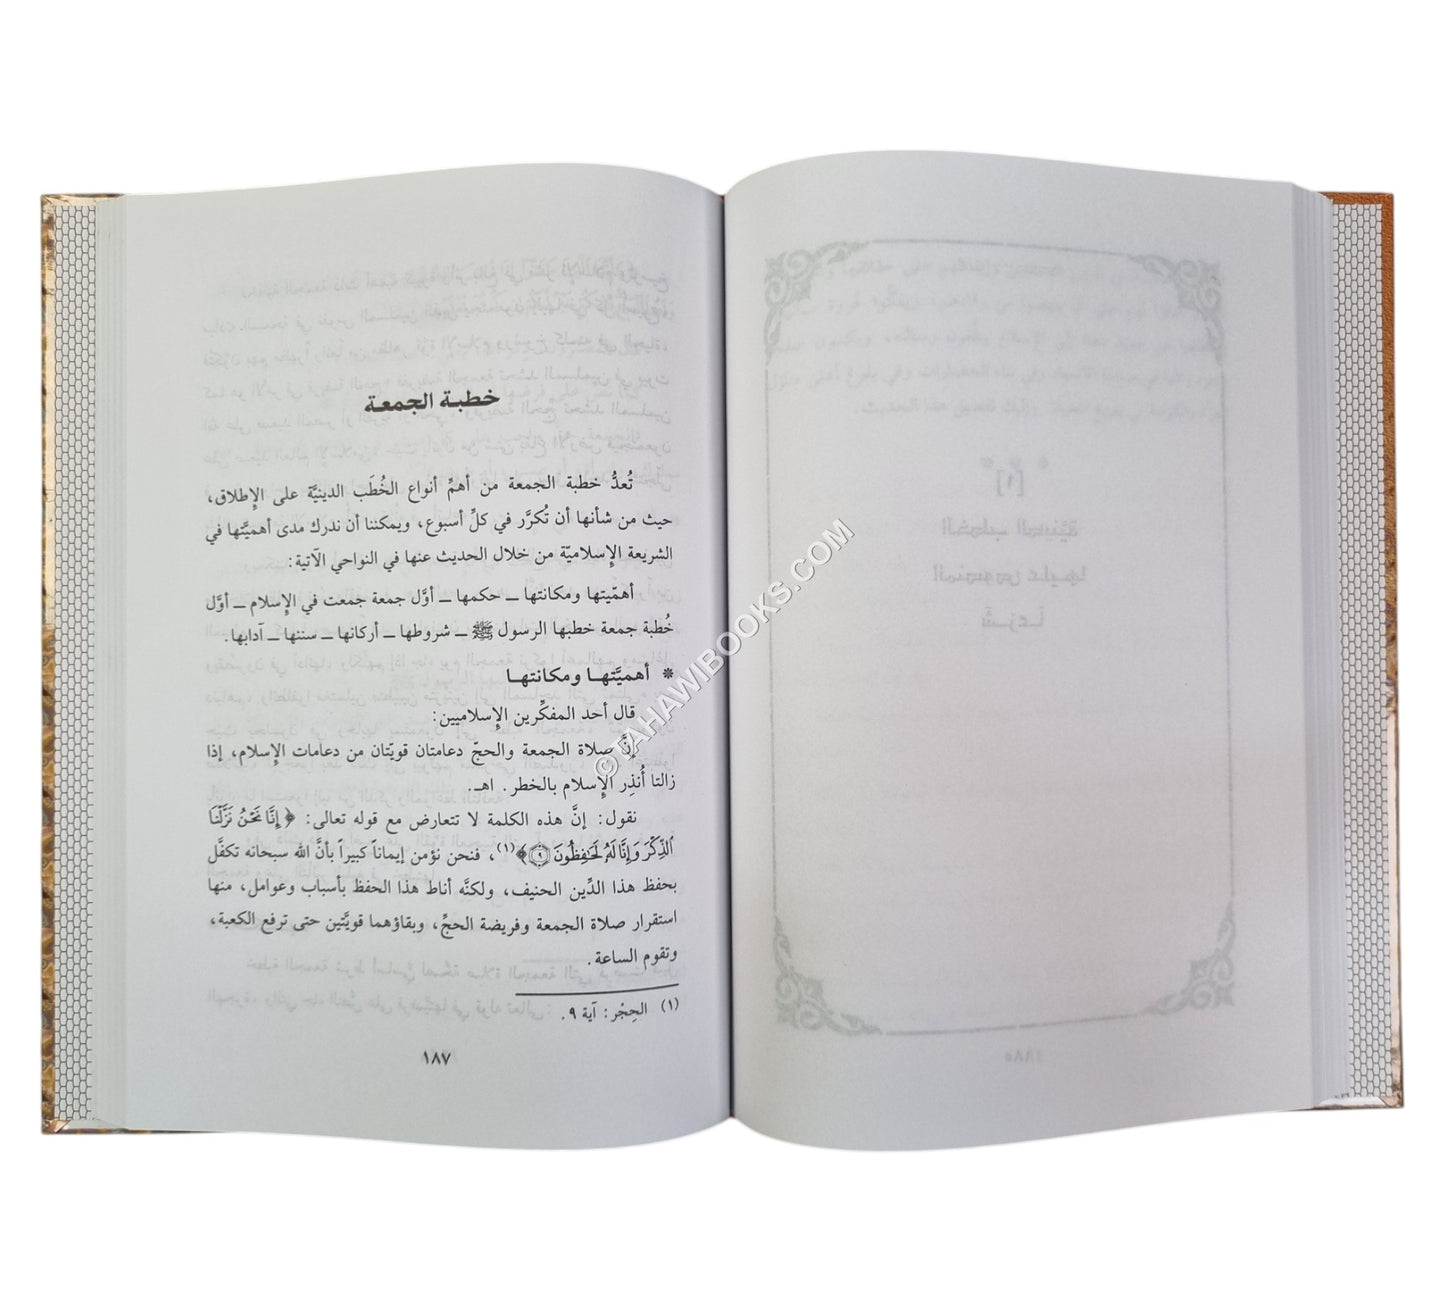 خطبة الجمعة
تُعدُّ خطبة الجمعة من أهمِّ أنواع الخُطَب الدينيَّة على الإِطلاق،
حيث من شأنها أن تُكرَّر في كلِّ أسبوع، ويمكننا أن ندرك مدى أهميَّتها في
الشريعة الإِسلاميّة من خلال الحديث عنها في النواحي الآتية:
أهمّيتها ومكانتها ــ حكمها ــ أوَّل جمعة جمعت في الإِسلام ــ أوَّل
خُطبة جمعة خطبها الرسول ﷺ ــ شروطها ــ أركانها ــ سننها ــ آدابها.
* أهميَّتهـا ومكانتهـا
قال أحد المفكِّرين الإِسلاميين:
إنَّ صلاة الجمعة والحجّ دعامتان قويّتان من دعامات الإِسلام، إذا
زالتا أُنذِر الإِسلام بالخطر. اهـ.
نقول: إنَّ هذه الكلمة لا تتعارض مع قوله تعالى: ﴿ إِنَّا نَحْنُ نَزَّلْنَا
ٱلذِّكْرَ وَإِنَّا لَهُۥ لَحَٰفِظُونَ ٩ ﴾(١)، فنحن نؤمن إيماناً كبيراً بأنَّ الله سبحانه تكفَّل
بحفظ هذا الدِّين الحنيف، ولكنَّه أناط هذا الحفظ بأسباب وعوامل، منها
استقرار صلاة الجمعة وفريضة الحجِّ، وبقاؤهما قويَّتين حتى ترفع الكعبة،
وتقوم الساعة.
(١) الحِجْر: آية ٩.
١٨٧
© TAHAWIBOOKS.COM